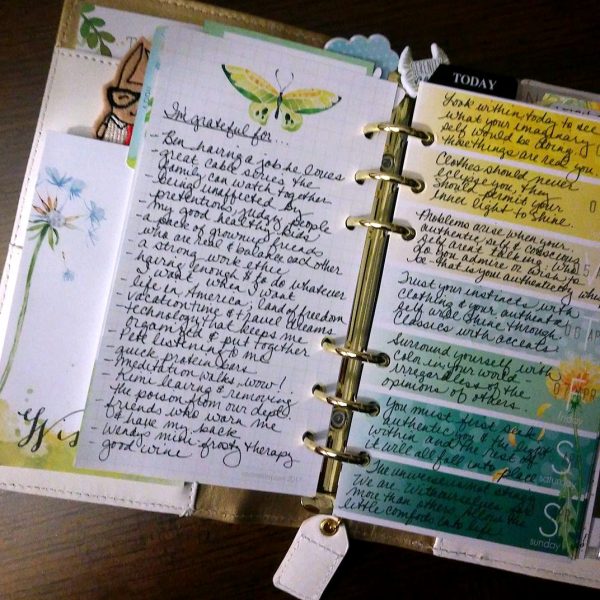 I'm grateful for...
- Ben having a job he loves
- great cable series the
family can watch together
- being unaffected by
pretentious, judgy people
- my good healthy kids
- a pack of grownup friends
who are real & balance each other
- a strong work ethic
- having enough to do whatever
I want, when I want
- life in America, land of freedom
- vacation time & travel dreams
- technology that keeps me
organized & put together
- Pete listening to me
- quick protein bars
- meditation talks, wow!
- Kimi leaving & removing
the poison from our dept.
- friends who warm me
& have my back
- Wendys mini-frosty therapy
- good wine
Wis
TODAY
Look within today to see
what your imaginary
self would be doing
these things are real you
Clothes should never
eclipse you, they
should permit your
inner light to shine.
Problems arise when your
authentic self & conscious
self aren't talking. Who
do you admire or wish to
be - that is you authentically
Trust your instincts with
clothing & your authentic
self will shine through
Classics with accents
Surround yourself with
color in your world -
irregardless of the
opinions of others.
You must first seek
authentic joy & the light
within and the rest of
it will all fall into place
The
We are
more than others
little comforts into life
friday
S
saturday
S
sunday